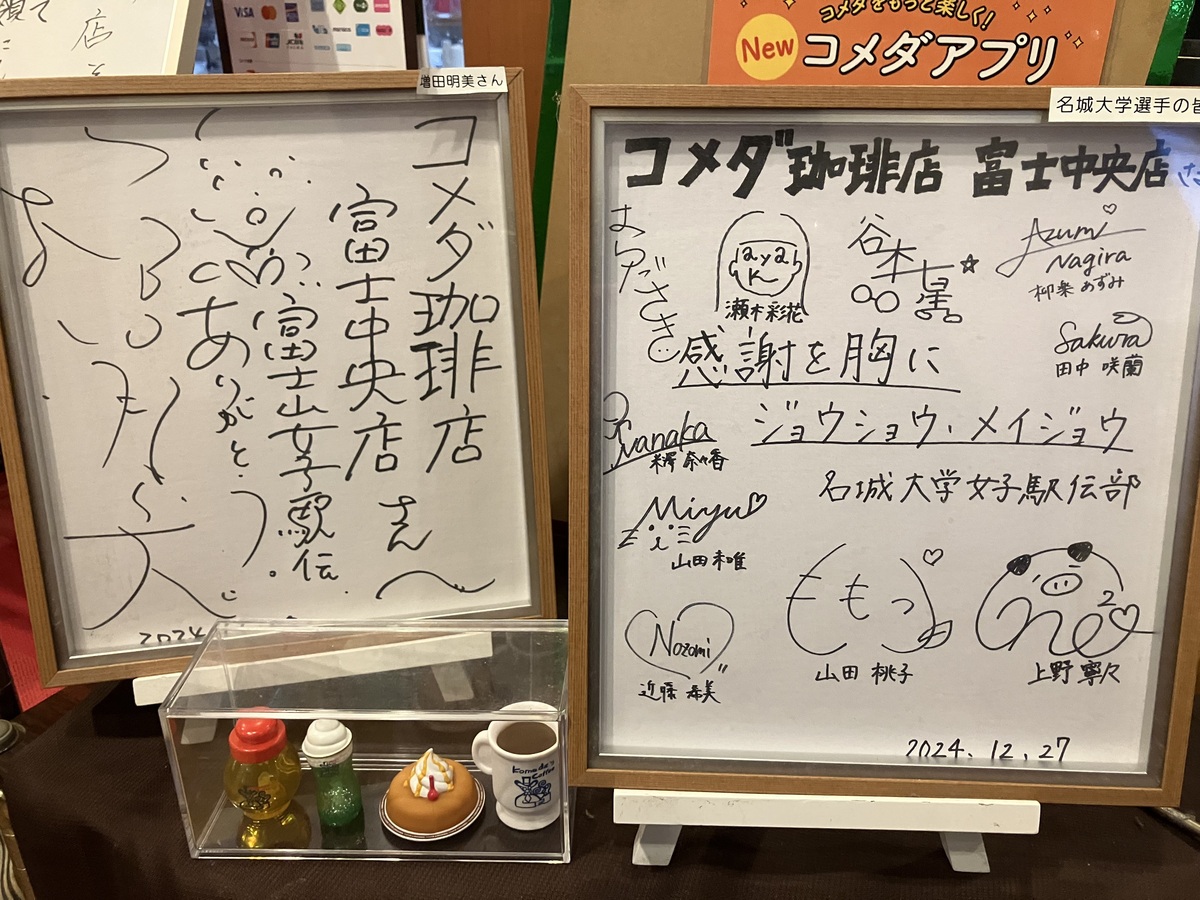 店
VISA
コメダをもっと楽しく!
New コメダアプリ
増田明美さん
コメダ珈琲店
富士中央店
さん
富士山女子駅伝
ありがとう。
2024
名城大学選手の皆
コメダ珈琲店 富士中央店
Ayaka
瀬木彩花
谷本七星☆
Azumi
Nagira
柳樂あずみ
Sakura
田中 咲蘭
感謝を胸に
nanaka
米澤 奈々香
ジョウショウ、メイジョウ
名城大学女子駅伝部
Miyu♡
山田未唯
Nozomi
近藤希美
ももっ
山田 桃子
上野寧々
2024.12.27
Komeda's
Coffee